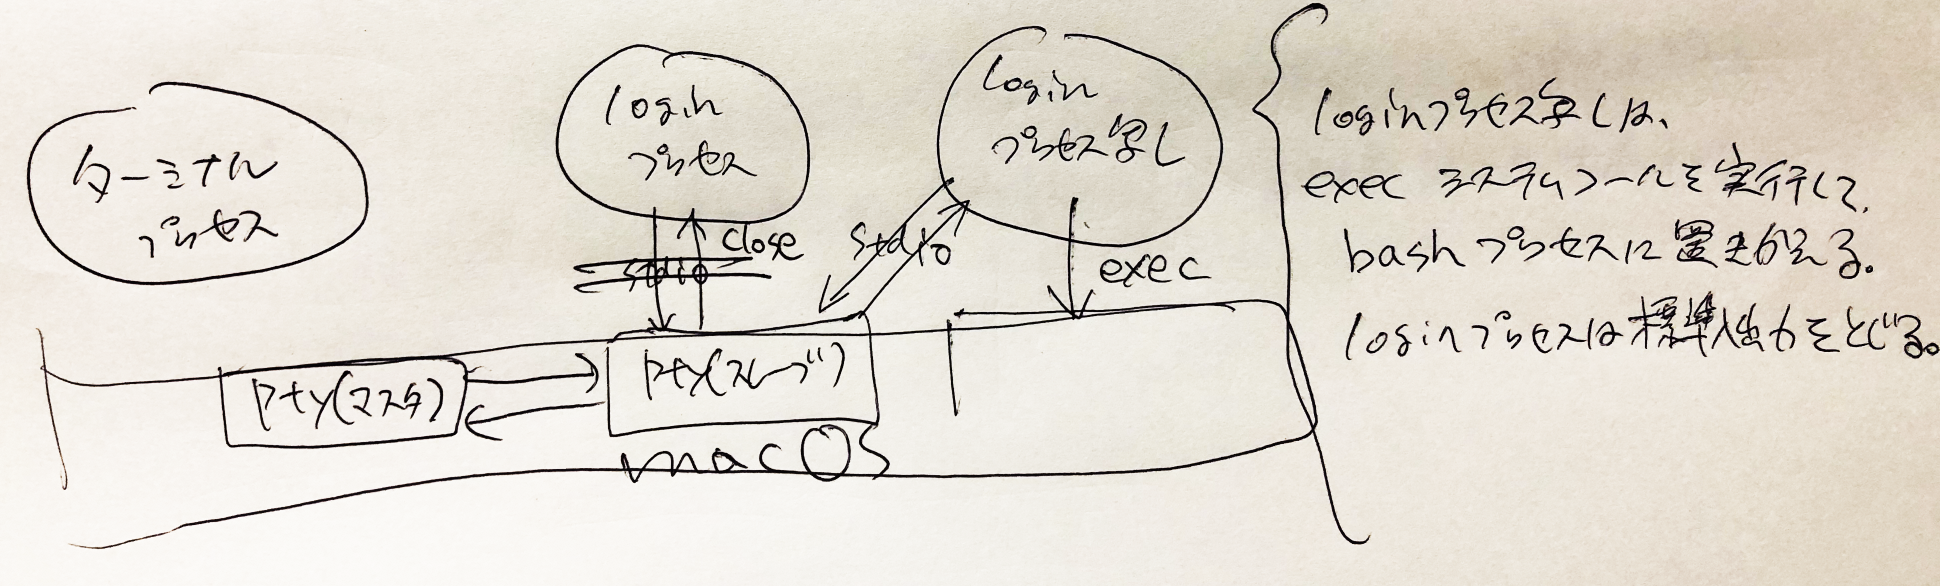 ターミナル
プロセス
login
プロセス
close
stdio
login
プロセス写し
stdio
exec
pty(マスタ)
pty(スレーブ)
macOS
loginプロセス写しは、
exec システムコールを実行して、
bashプロセスに置きかえる。
loginプロセスは標準入出力をとじる。